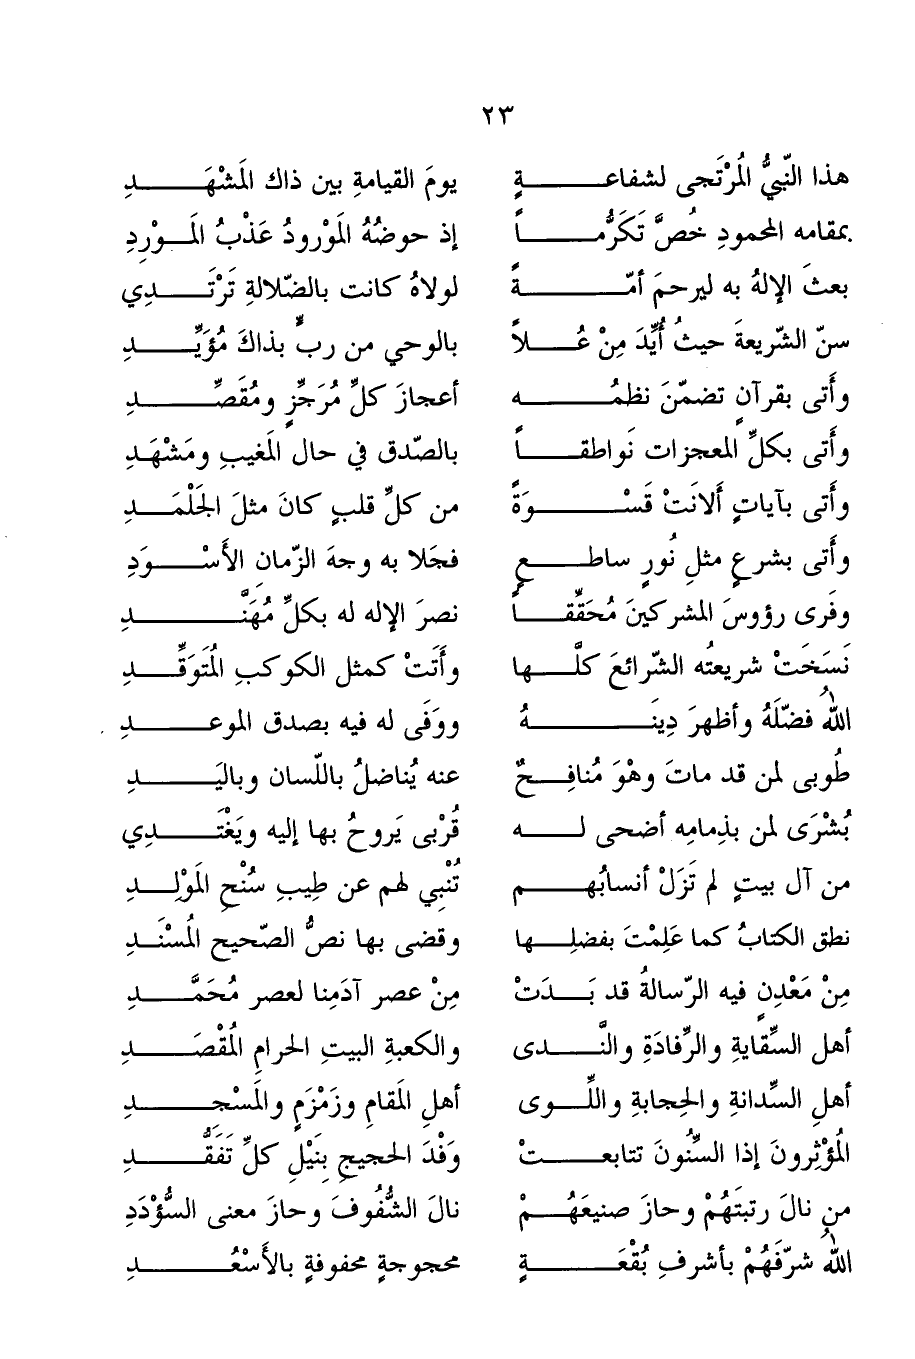 ٢٣
هذا النّبيُّ المُرْتَجى لشفاعةٍ يومَ القيامةِ بين ذاك المَشْهَدِ
بمقامه المحمودِ خُصَّ تَكَرُّماً إذ حوضُهُ المَوْرودُ عَذْبُ المَوْرِدِ
بعثَ الإلهُ به ليرحمَ أمّةً لولاهُ كانت بالضّلالةِ تَرْتَدِي
سنّ الشّريعةَ حيثُ أُيِّدَ مِنْ عُلاً بالوحي من ربٍّ بذاكَ مُؤَيِّدِ
وأَتى بقرآنٍ تضمّنَ نظمُه أعجازَ كلِّ مُرَجِّزٍ ومُقَصِّدِ
وأَتى بكلِّ المعجزات نَواطقاً بالصّدق في حال المَغيبِ ومَشْهَدِ
وأَتى بآياتٍ أَلانَتْ قَسْوَةً من كلِّ قلبٍ كانَ مثلَ الجَلْمَدِ
وأَتى بشرعٍ مثلِ نُورٍ ساطعٍ فجَلا به وجهَ الزّمانِ الأَسْوَدِ
وفَرى رؤوسَ المشركينَ مُحَقَّقاً نصرَ الإله له بكلِّ مُهَنَّدِ
نَسَخَتْ شريعتُه الشّرائعَ كلَّها وأَتَتْ كمثل الكوكبِ المُتَوَقِّدِ
اللهُ فضّلَهُ وأظهرَ دِينَهُ ووَفَى له فيه بصدق الموعدِ
طُوبى لمن قد ماتَ وهْوَ مُنافِحٌ عنه يُناضلُ باللّسان وباليَدِ
بُشْرَى لمن بذِمامِه أضحى له قُرْبى يَروحُ بها إليه ويَغْتَدِي
من آل بيتٍ لم تَزَلْ أنسابُهم تُنْبِي لهم عن طِيبِ سُنْحِ المَوْلِدِ
نطق الكتابُ كما عَلِمْتَ بفضلِها وقضى بها نصُّ الصّحيح المُسْنَدِ
مِنْ مَعْدِنٍ فيه الرّسالةُ قد بَدَتْ مِنْ عصر آدَمِنا لعصر مُحَمَّدِ
أهل السِّقايةِ والرِّفادَةِ والنَّدى والكعبةِ البيتِ الحرامِ المُقْصَدِ
أهلِ السِّدانةِ والحِجابةِ واللِّوى أهلِ المَقامِ وزَمْزَمٍ والمَسْجدِ
المُؤْثِرونَ إذا السِّنُونَ تتابعتْ وَفْدَ الحجيجِ بِنَيْلِ كلِّ تَفَقُّدِ
من نالَ رتبتَهُمْ وحازَ صنيعَهُمْ نالَ الشُّفُوفَ وحازَ معنى السُّؤْدَدِ
اللهُ شرّفَهُمْ بأشرفِ بُقْعَةٍ محجوجةٍ محفوفةٍ بالأَسْعُدِ